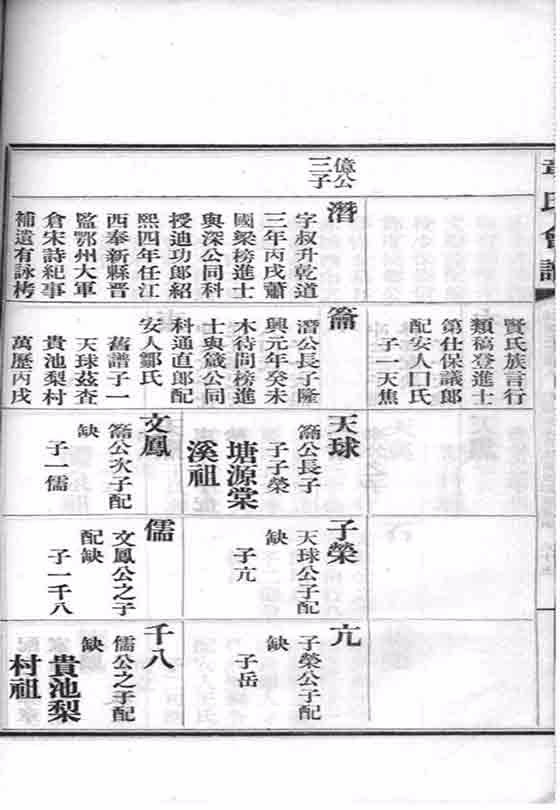 章氏會譜
億公
三子
潛
字叔升乾道
三年丙戌蕭
國梁榜進士
與深公同科
授迪功郎紹
熙四年任江
西奉新縣晋
監鄂州大軍
倉宋詩紀事
補遺有詠栲
賢氏族言行
類稿登進士
第仕保議郎
配安人囗氏
子一天焦
籥
潛公長子隆
興元年癸未
木待問榜進
士與箴公同
科通直郎配
安人鄒氏
舊譜子一
天球茲查
貴池梨村
萬歷丙戌
天球
籥公長子
子子榮
塘源棠
溪祖
文鳳
籥公次子配
缺
子一儒
子榮
天球公子配
缺
子亢
儒
文鳳公之子
配缺
子一千八
亢
子榮公子配
缺
子岳
千八
儒公之子配
缺
貴池梨
村祖